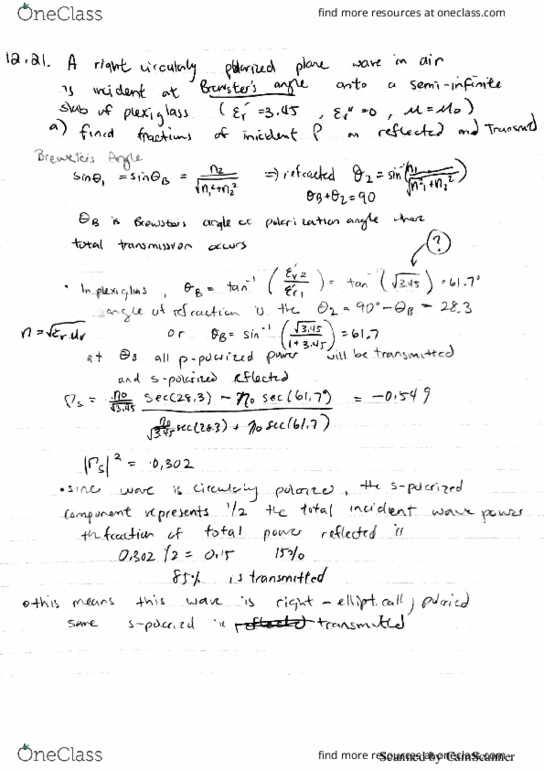 OneClass
find more resources at oneclass.com
12.21. A right circularly polarized plane wave in air
is incident at Brewster's angle onto a semi-infinite
slab of plexiglass (εr' = 3.45, εr'' = 0, μ = μ0)
a) find fractions of incident P on reflected and Transmtd
Brewster's Angle
sinθ1 = sinθB = n2/√(n1²+n2²) ⇒ refracted θ2 = sin⁻¹(n1/√(n1²+n2²))
θB+θ2=90
θB is Brewsters angle or polarization angle where
total transmission occurs
?
• In plexiglass, θB = tan⁻¹(εr2'/εr1') = tan⁻¹(√3.45) = 61.7°
angle of refraction is the θ2 = 90° - θB = 28.3
n = √εr μr or θB = sin⁻¹(√3.45/1+3.45) = 61.7
at θB all p-polarized power will be transmitted
and s-polarized reflected
Γs = (η0/√3.45 sec(28.3) - η0 sec(61.7°))/(η0/√3.45 sec(28.3) + η0 sec(61.7)) = -0.549
|Γs|² = 0,302
• since wave is circularly polarized, the s-polarized
component represents 1/2 the total incident wave power
the fraction of total power reflected is
0.302/2 = 0.15 15%
85% is transmitted
• this means this wave is right-elliptically polarized
some s-polarized is reflected transmitted
OneClass
find more resources at oneclass.com
Scanned by CamScanner